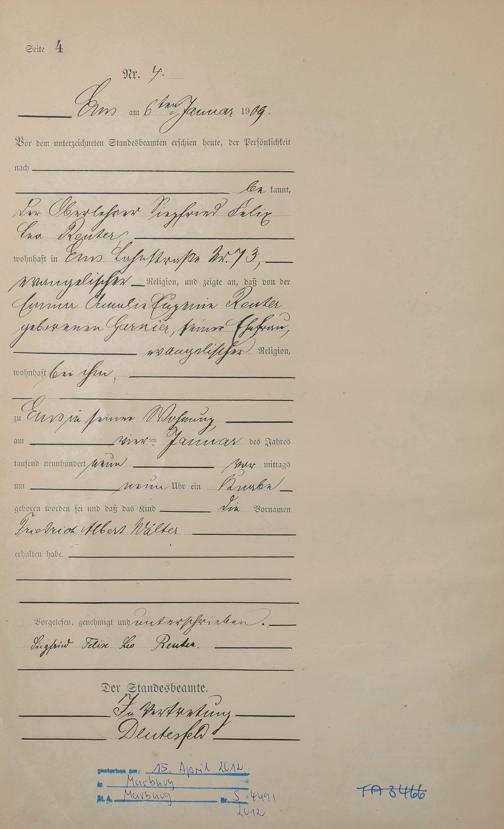 Seite 4
Nr. 4.
Ems am 6ten Januar 1909.
Vor dem unterzeichneten Standesbeamten erschien heute, der Persönlichkeit
nach
bekannt,
der Oberlehrer Siegfried Felix
Leo Reuter,
wohnhaft in Ems Lahnstraße Nr. 73,
evangelischer Religion, und zeigte an, daß von der
Emma Amalie Eugenie Reuter
geborenen Garnier, seiner Ehefrau,
evangelischer Religion,
wohnhaft bei ihm,
zu Ems in seiner Wohnung
am vier Januar des Jahres
tausend neunhundert neun vor mittags
um neun Uhr ein Knabe
geboren worden sei und daß das Kind die Vornamen
Friedrich Albert Walter
erhalten habe.
Vorgelesen, genehmigt und unterschrieben.
Siegfried Felix Leo Reuter.
Der Standesbeamte.
In Vertretung
gestorben am: 15. April 2012
in Marburg
St. A. Marburg Nr. S 
2012
TA 3466